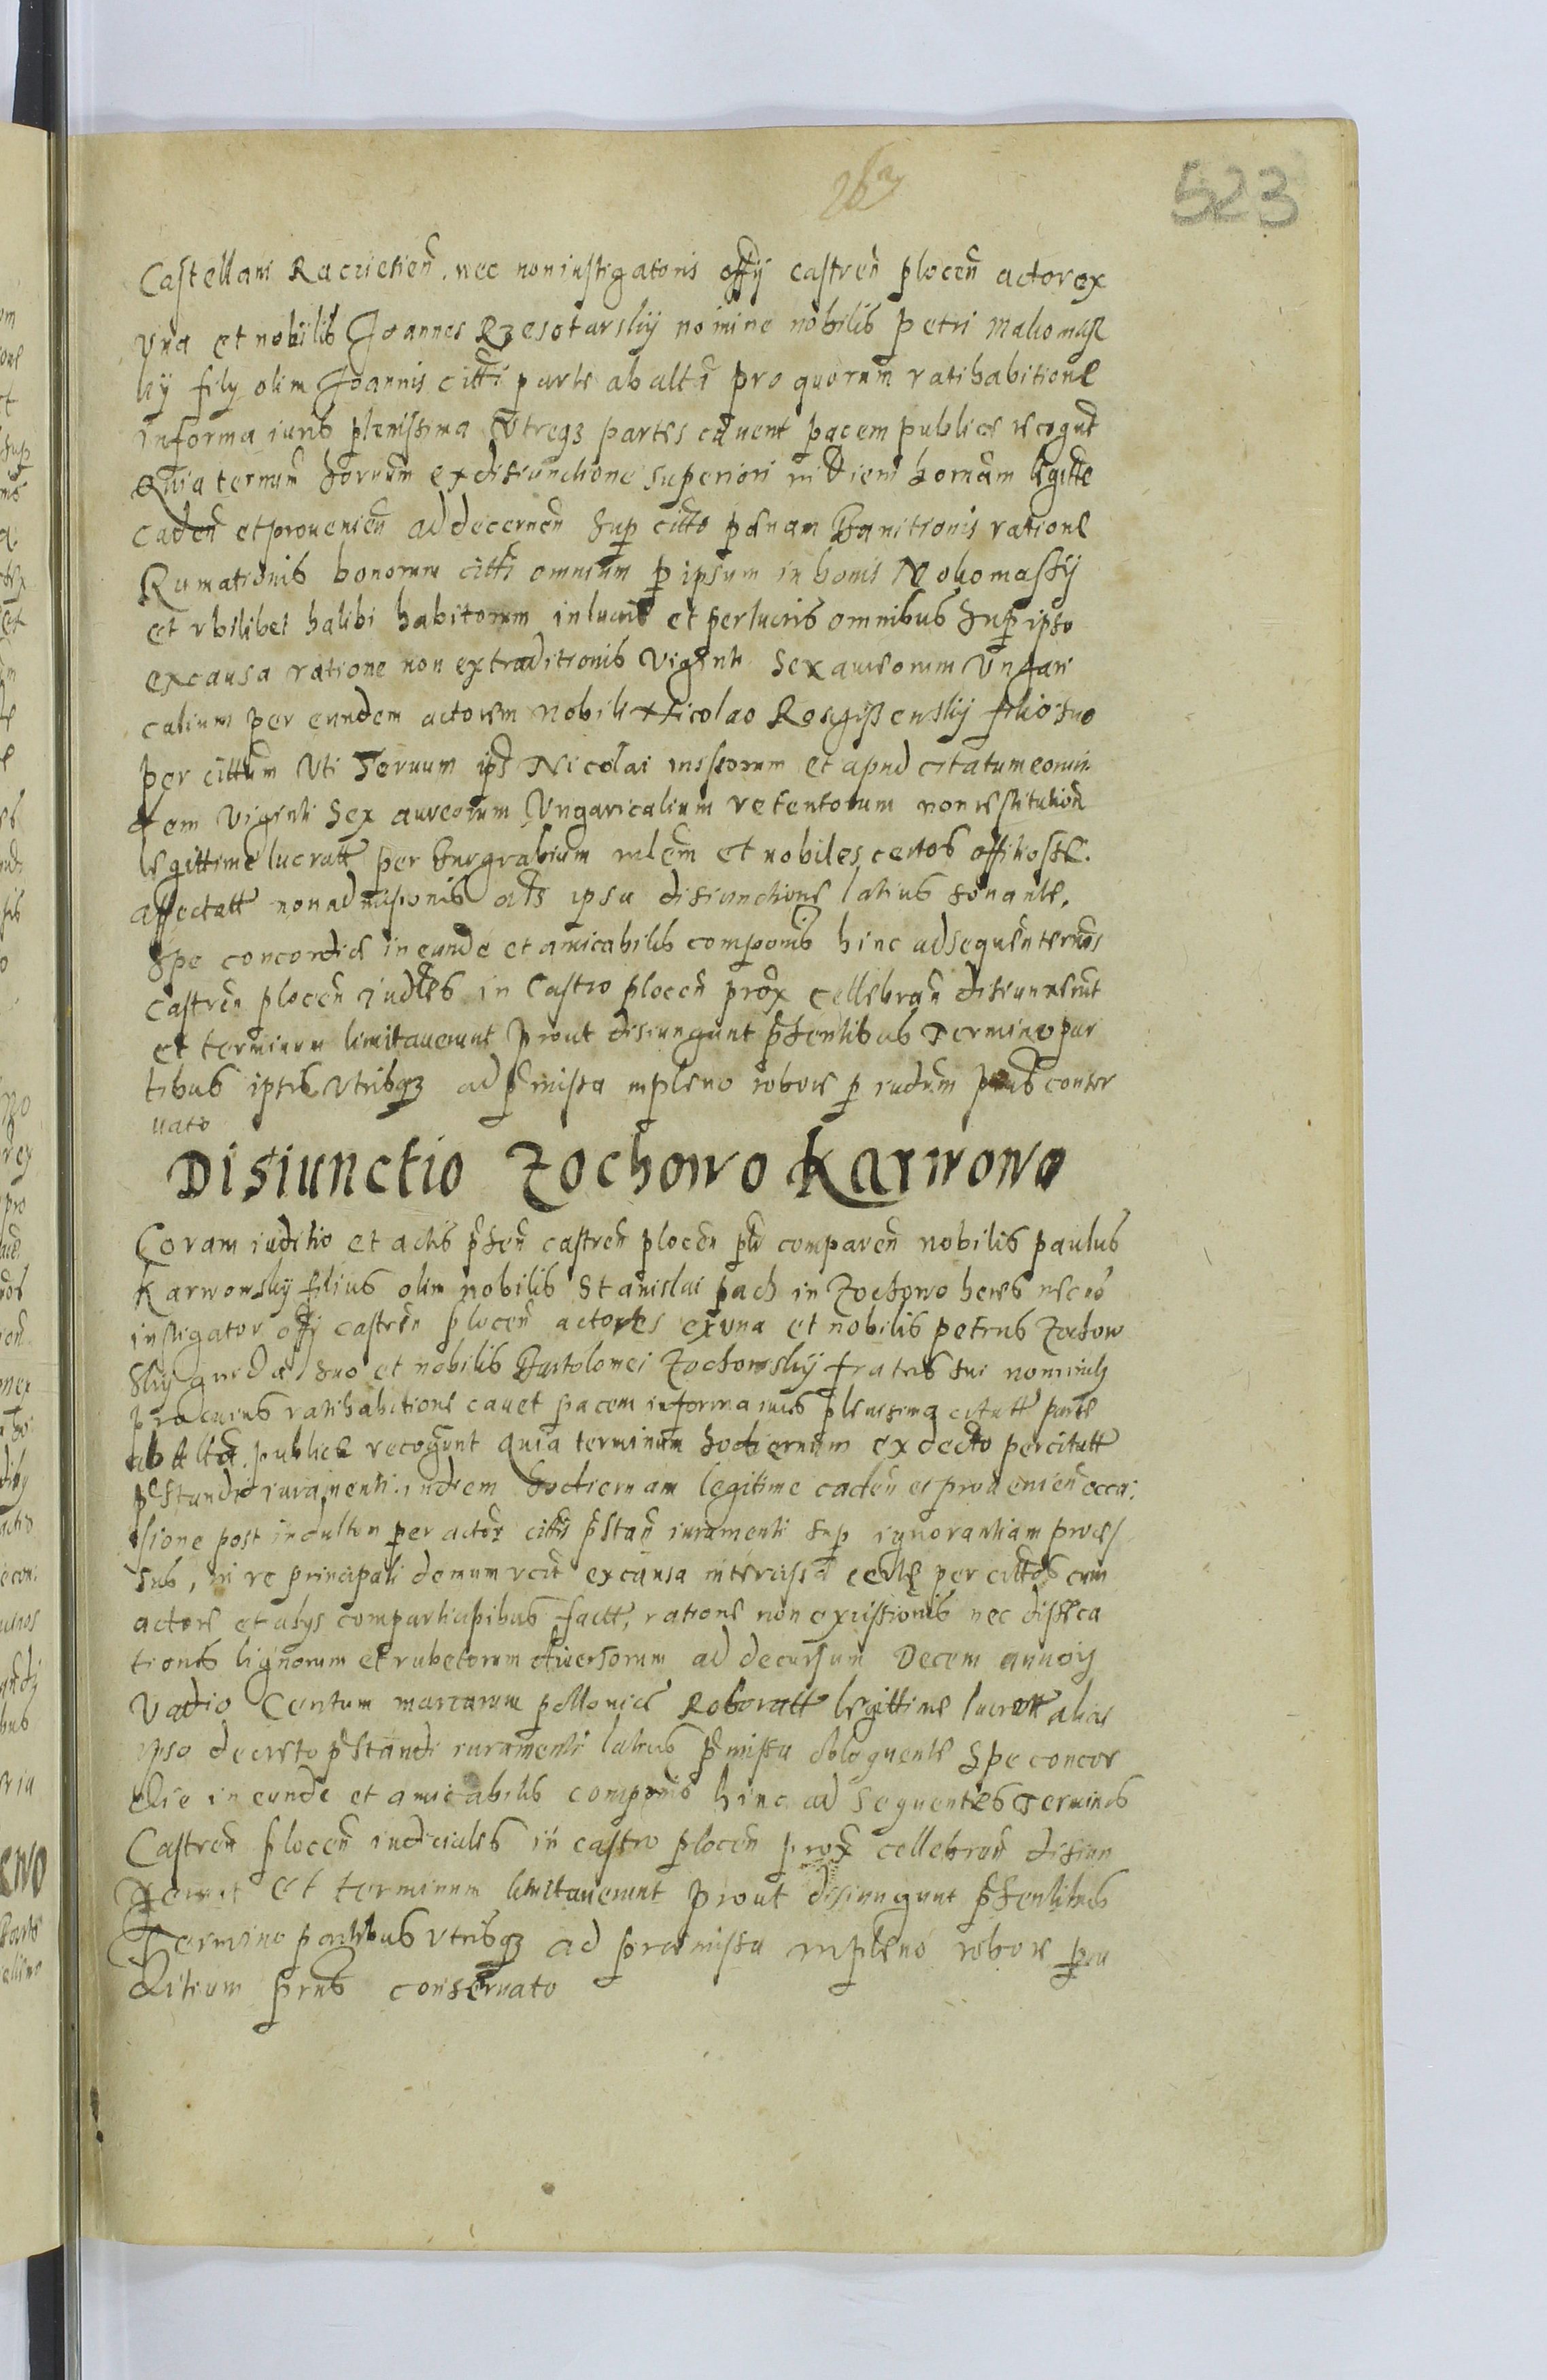 523
Castellani Raczieziēn. nec non instigatoris offy castren̄ plocen̄ actor ex
vna et nobilis Joannes Rzesotarskÿ nomine nobilis Petri Makomas
kÿ fily olim Joannis citti parte ab alta pro quorum ratihabitione
in forma iuris plenissima vtreqȝ partes cavent pacem publice recognt
Quia termin hornum ex disiunctione superiori in diem hornam legitte
caden̄ et provenien̄ ad decernen̄ sup citto pænam Banitionis ratione
Rumationis bonorum citti omnium p ipsum in bonis Mokomassÿ
et vbilibet halibi habitorum in lucris et perlucris omnibus sup ipso
ex causa ratione non extraditionis viginti sex aureorum Vngari
calium per eundem actorem nobili Nicolao Rosczissenskÿ filio suo
per cittum vti servum ips Nicolai missorum et apud citatum eorun
dem viginti sex aureorum Vngaricalium retentorum non restitution̄
legittime lucratt per Burgrabium et nobiles certos
affectatt non admissionis ats ipsa disiunctione latius sonante.
Spe concordiæ ineundé et amicabilis componis hinc ad sequen terños
castren̄ plocen̄ iudles in Castro plocen̄ prox cellebran̄ disiunxerut
et terminum limitaverunt prout disiungunt p̄sentibus Termino par
tibus ipsis vtribqȝ ad p̄missa in pleno robore p iudum prius conser
uato
Disiunctio Zochowo Karwowo
Coram iuditio et actis p̄sen̄ castren̄ plocen̄ plr comparen̄ nobilis paulus
Karwowskÿ filius olim nobilis Stanislai pach in Zochowo heres necno
instigator offy castren̄ plocen̄ actores ex vna et nobilis petrus Zochow
skÿ suo et nobilis Bartolomei Zochowskÿ fratris sui nominibȝ
pro cuius ratihabitione cavet pacem in forma iuris plenissima citatt parte
ab alta. publice recognunt quia terminum hodiernum ex decto per citatt
p̄standi iuramenti in diem hodiernam legitime caden̄ et provenien̄ occa:
sione post indultum per actor cittis p̄stan̄ iuramenti sup ignorantiam proces
sus, in re principali demum ex causa intercisæ certæ per cittos cum
actore et alÿs comparticipibus factt, ratione non excissionis nec disseca
tionis lignorum et rubetorum diversorum ad decursum Decem annorȝ
Vadio Centum marcarum pollonice Roboratt legittime lucratt alias
ipso decreto p̄standi iuramenti latius p̄missa obloquente Spe concor
die ineunde et amicabilis componis hinc ad sequentes Terminos
Castren̄ plocen̄ iudiciales in castro plocen̄ prox cellebran̄ disiun
xerunt et terminum limitaverunt prout disiungunt p̄sentibus
Termino partibus vtribqȝ ad præmissa in pleno robore p iu
ditium prius conservato